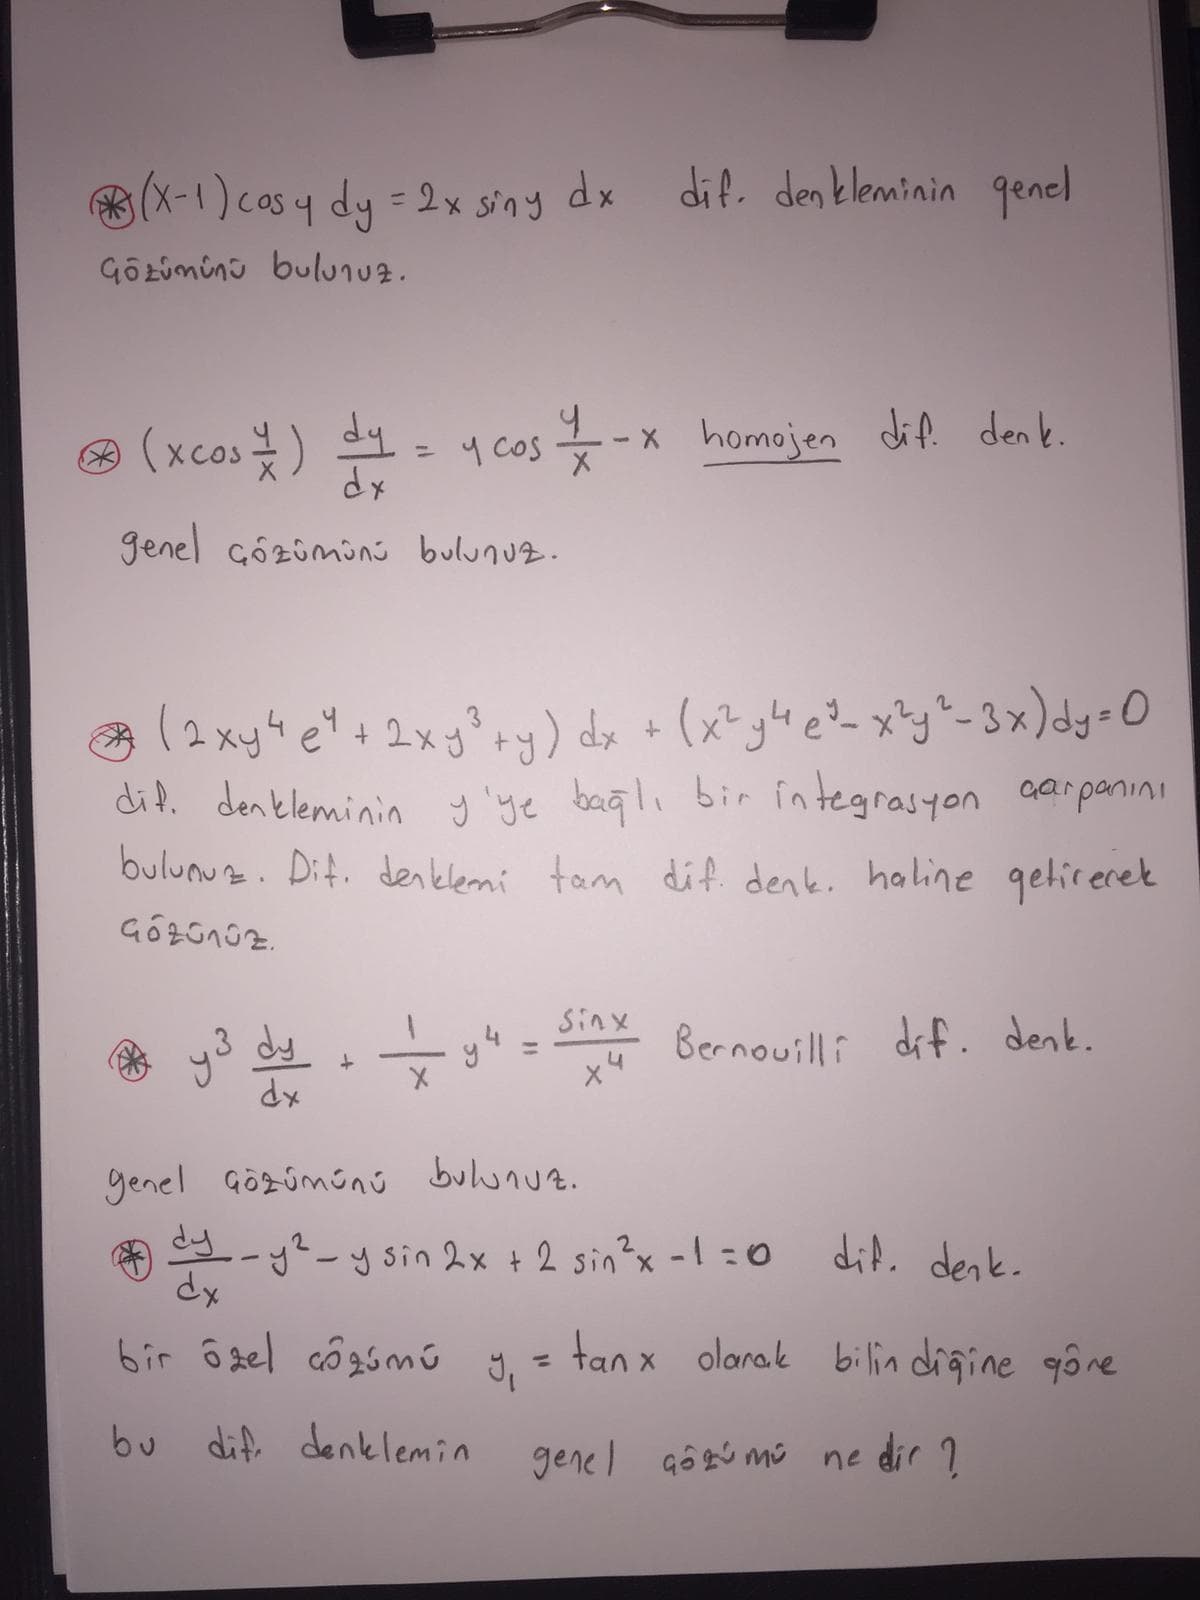 (x-1) cos y dy = 2x sin y dx dif. denkleminin genel
çözümünü bulunuz.
(x cos y/x) dy/dx = y cos y/x - x homojen dif. denk.
genel çözümünü bulunuz.
(2xy⁴e^y + 2xy³ + y) dx + (x²y⁴e^y - x²y² - 3x) dy = 0
dif. denkleminin y'ye bağlı bir integrasyon çarpanını
bulunuz. Dif. denklemi tam dif. denk. haline getirerek
çözünüz.
y³ dy/dx + 1/x y⁴ = sinx/x⁴ Bernouilli dif. denk.
genel çözümünü bulunuz.
dy/dx - y² - y sin 2x + 2 sin²x - 1 = 0 dif. denk.
bir özel çözümü y₁ = tan x olarak bilindiğine göre
bu dif. denklemin genel çözümü nedir?